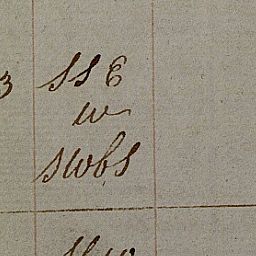 3 SSE
W
SWbS